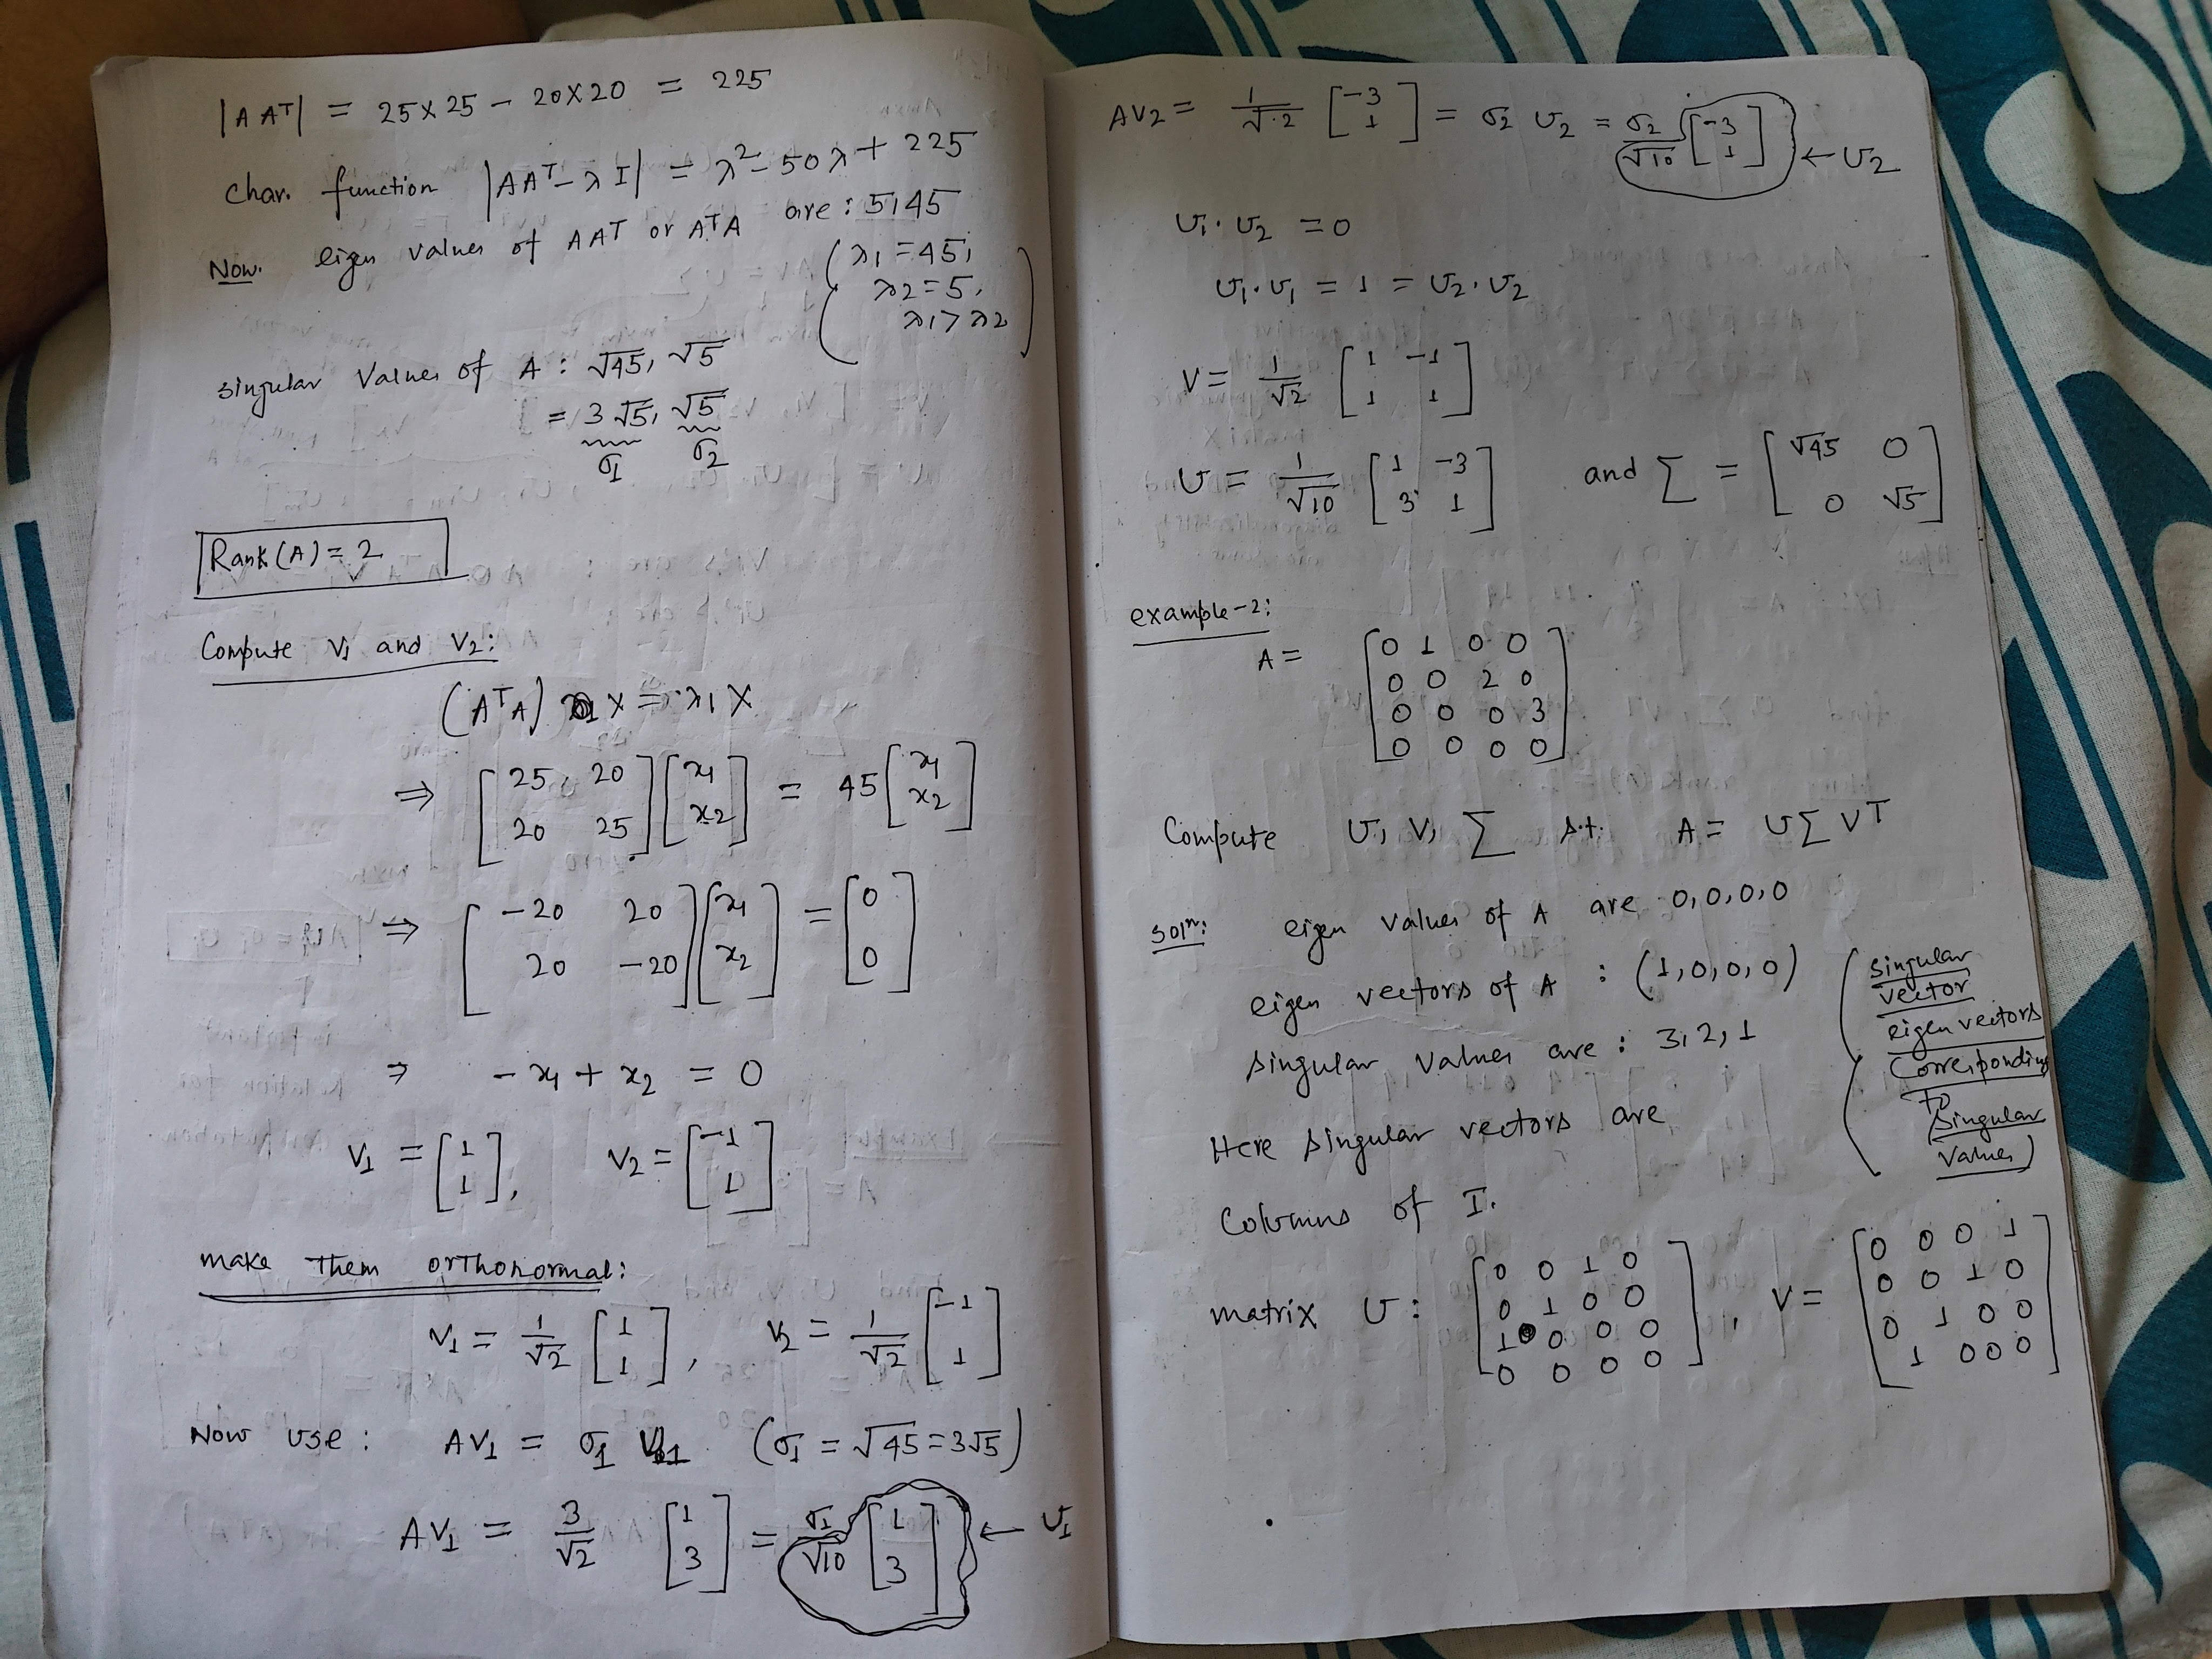 |AAᵀ| = 25×25 − 20×20 = 225
Char. function |AAᵀ−λI| = λ²−50λ + 225
Now. eigen values of AAᵀ or AᵀA are : 5,45
(λ1 = 45,
λ2 = 5,
λ1 > λ2)
singular values of A : √45, √5
= 3√5, √5
σ1 σ2
Rank(A) = 2
Compute V1 and V2:
(AᵀA) X = λ1 X
⇒ [25, 20; 20 25] [x1; x2] = 45 [x1; x2]
⇒ [−20 20; 20 −20] [x1; x2] = [0; 0]
⇒ −x1 + x2 = 0
V1 = [1; 1], V2 = [−1; 1]
make them orthonormal:
V1 = 1/√2 [1; 1], V2 = 1/√2 [−1; 1]
Now use : AV1 = σ1 U1 (σ1 = √45 = 3√5)
AV1 = 3/√2 [1; 3] = σ1/√10 [1; 3] ← U1
AV2 = 1/√2 [−3; 1] = σ2 U2 = σ2/√10 [−3; 1] ← U2
U1. U2 = 0
U1. U1 = 1 = U2. U2
V = 1/√2 [1 −1; 1 1]
U = 1/√10 [1 −3; 3 1] and Σ = [√45 0; 0 √5]
example-2:
A = [0 1 0 0; 0 0 2 0; 0 0 0 3; 0 0 0 0]
Compute U, V, Σ s.t. A = UΣVᵀ
Solⁿ: eigen values of A are 0,0,0,0
eigen vectors of A : (1,0,0,0)
singular values are : 3,2,1
(singular
vector
eigen vectors
corresponding
to
singular
values)
Here singular vectors are
columns of I.
matrix U : [0 0 1 0; 0 1 0 0; 1 0 0 0; 0 0 0 0], V = [0 0 0 1; 0 0 1 0; 0 1 0 0; 1 0 0 0]